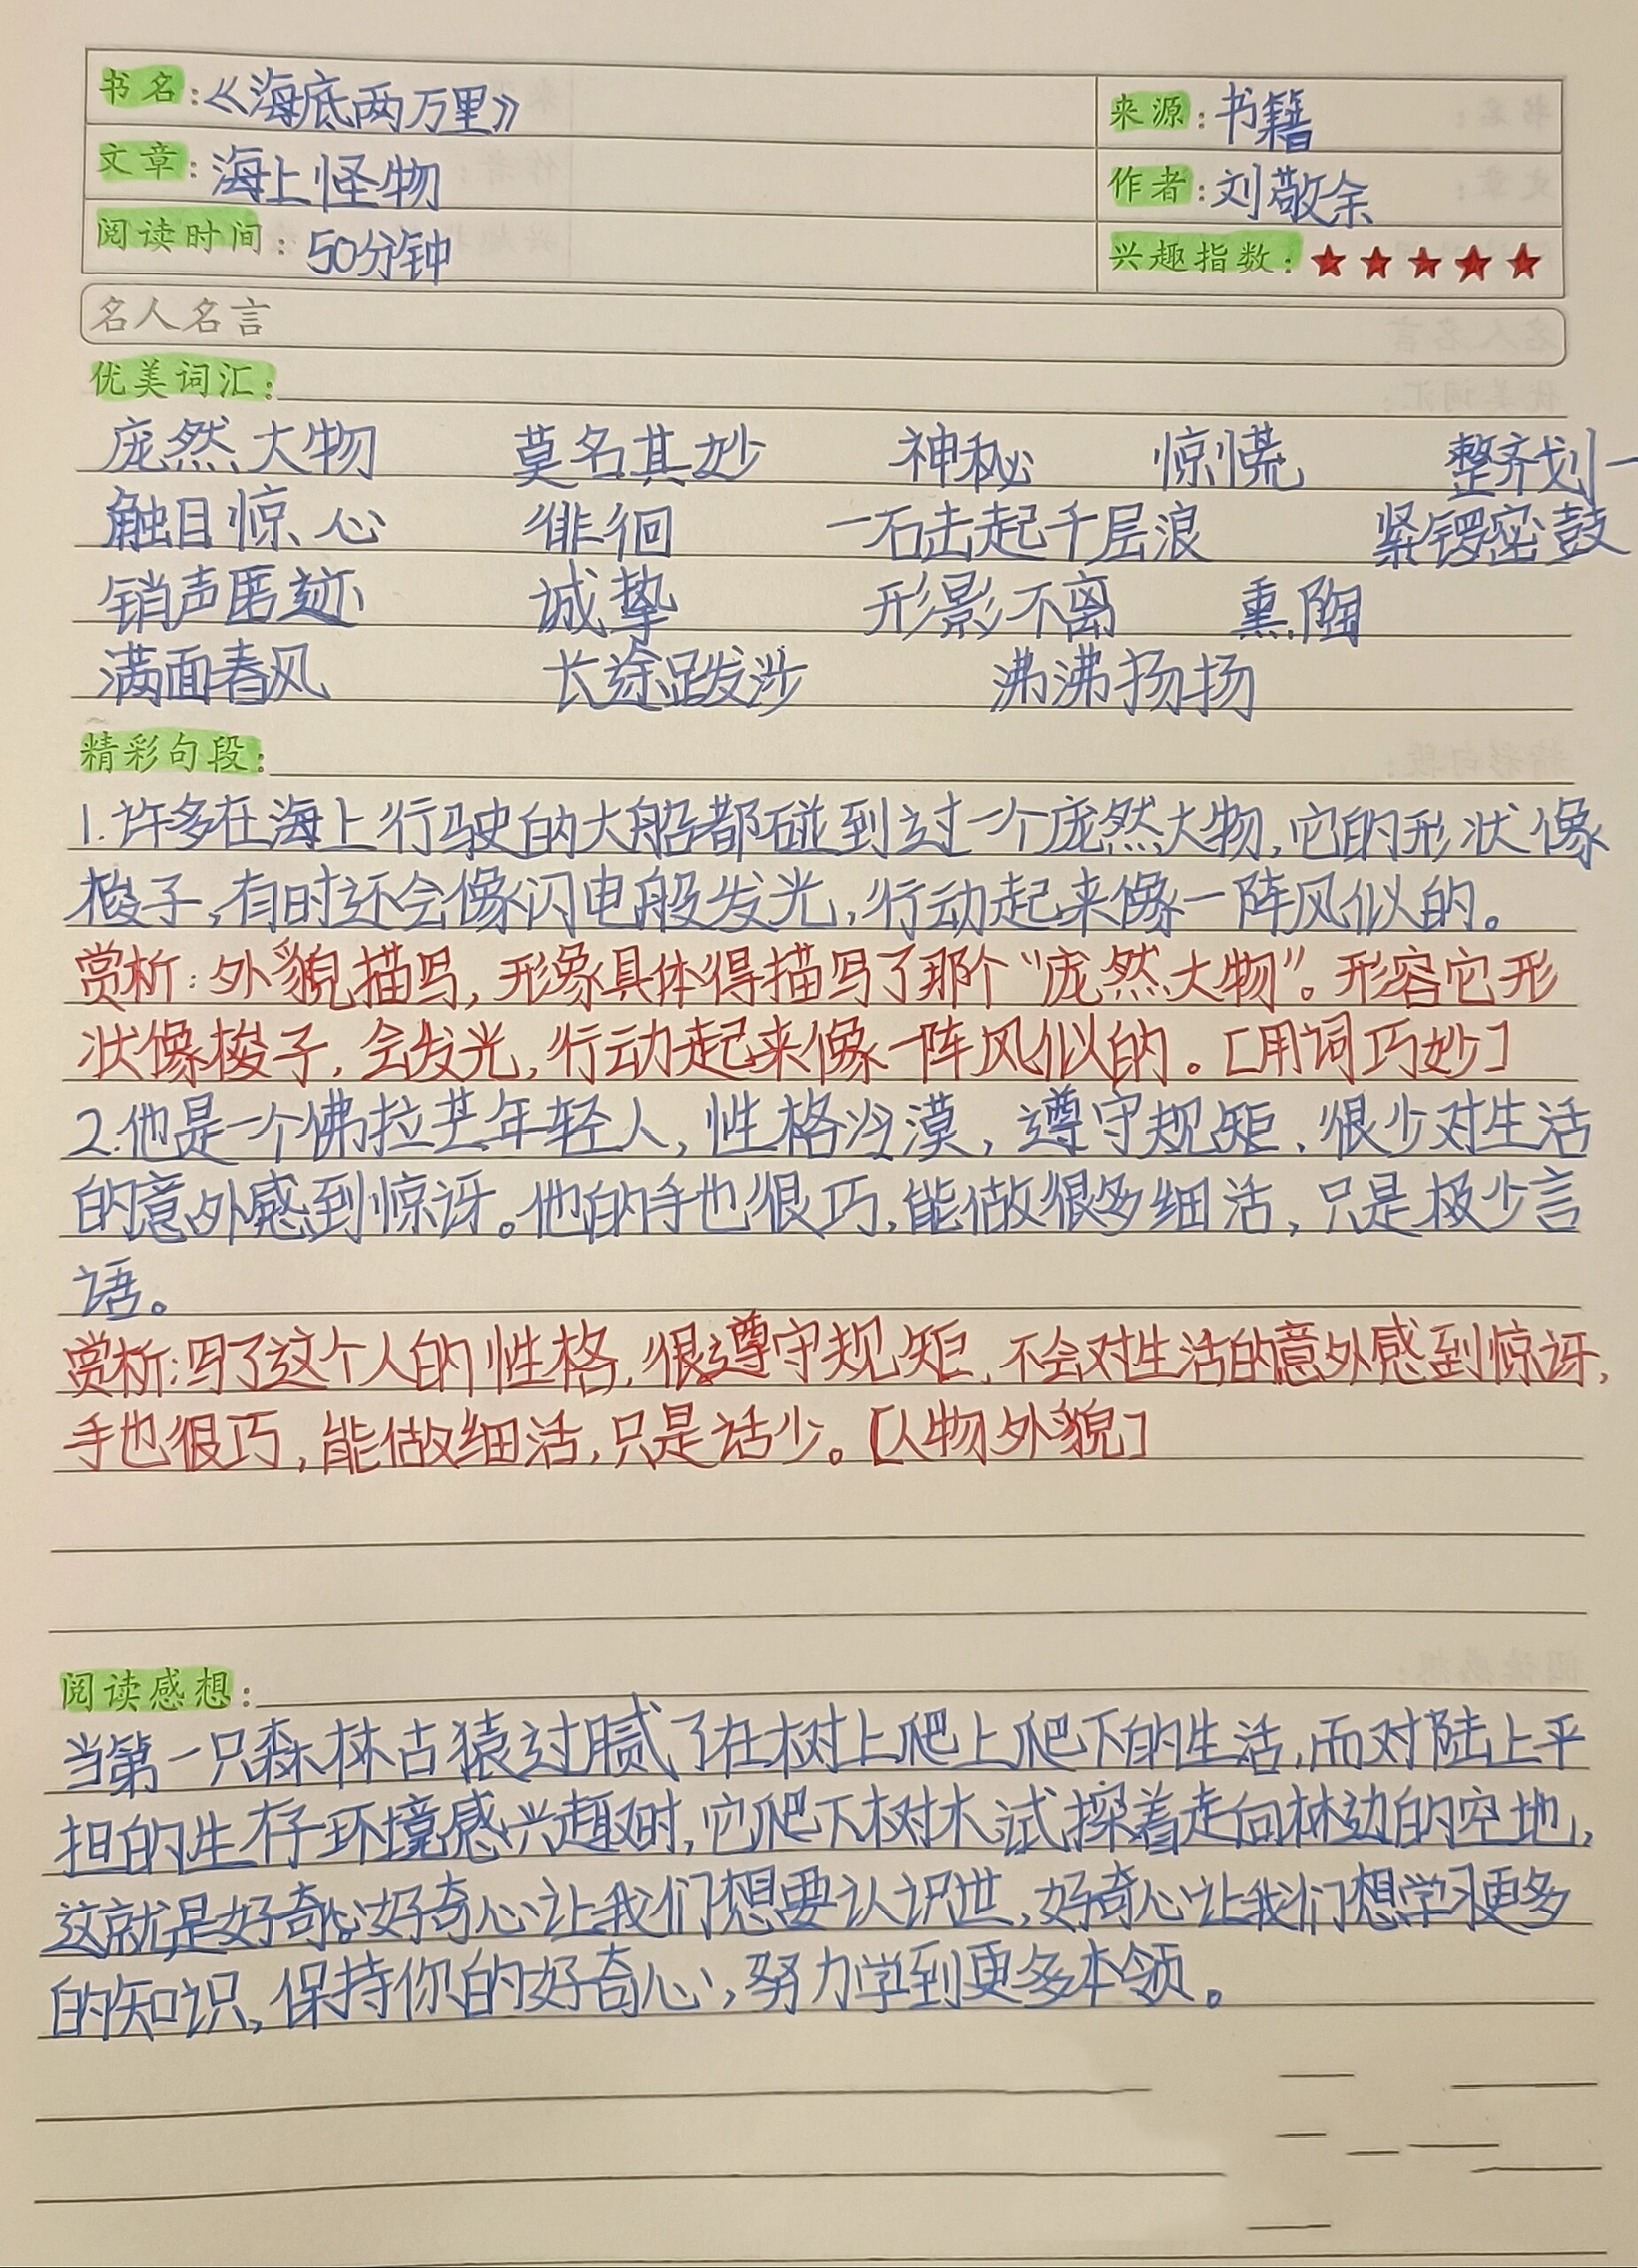 书名:《海底两万里》 来源:书籍
文章:海上怪物 作者:刘敬余
阅读时间:50分钟 兴趣指数:★★★★★
名人名言
优美词汇:
庞然大物 莫名其妙 神秘 惊慌 整齐划一
触目惊心 徘徊 一石击起千层浪 紧锣密鼓
销声匿迹 诚挚 形影不离 熏陶
满面春风 长途跋涉 沸沸扬扬
精彩句段:
1.许多在海上行驶的大船都碰到过一个庞然大物,它的形状像
梭子,有时还会像闪电般发光,行动起来像一阵风似的。
赏析:外貌描写,形象具体得描写了那个“庞然大物”。形容它形
状像梭子,会发光,行动起来像一阵风似的。[用词巧妙]
2.他是一个佛拉芒年轻人,性格冷漠,遵守规矩,很少对生活
的意外感到惊讶。他的手也很巧,能做很多细活,只是极少言
语。
赏析:写了这个人的性格,很遵守规矩,不会对生活的意外感到惊讶,
手也很巧,能做细活,只是话少。[人物外貌]
阅读感想:
当第一只森林古猿过腻了在树上爬上爬下的生活,而对陆上平
担的生存环境感兴趣时,它爬下树木,试探着走向林边的空地,
这就是好奇心。好奇心让我们想要认识世,好奇心让我们想学习更多
的知识,保持你的好奇心,努力学到更多本领。